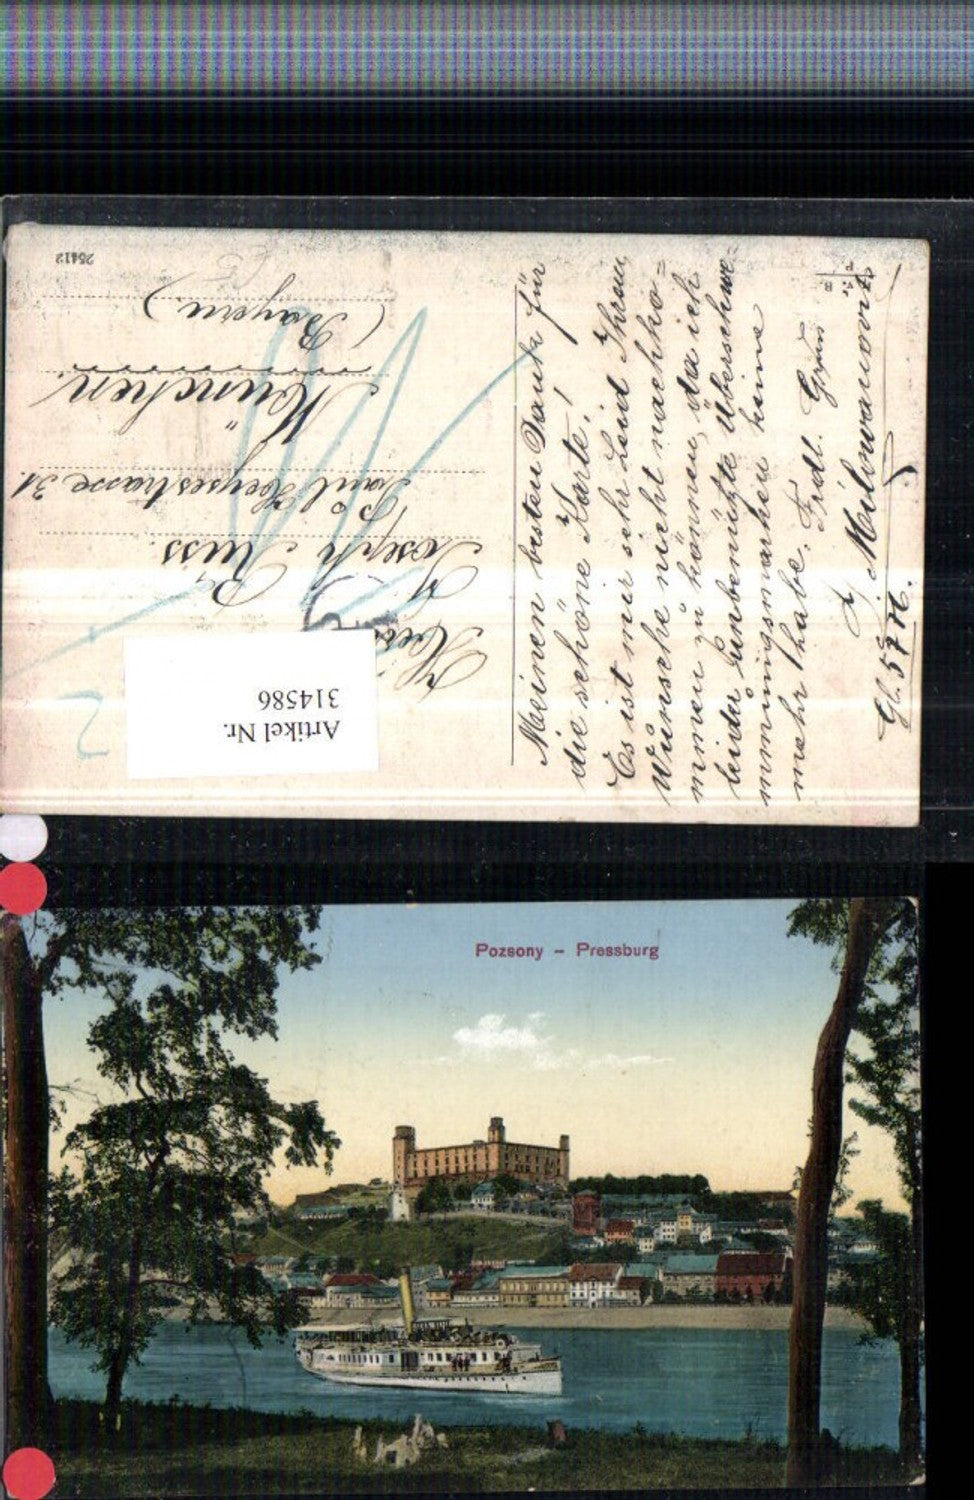 25412
Joseph Russ
Paul Heysestrasse 31.
München
(Bayern)
Artikel Nr.
314586
Meinen besten Dank für
die schöne Karte!
Es ist mir sehr Leid Ihrem
Wünsche nicht nachko-
mmen zu können, da ich
leider unbenützte Überschwe-
mmungsmarken keine
mehr habe. Frdl. Gruss
Pozsony – Pressburg